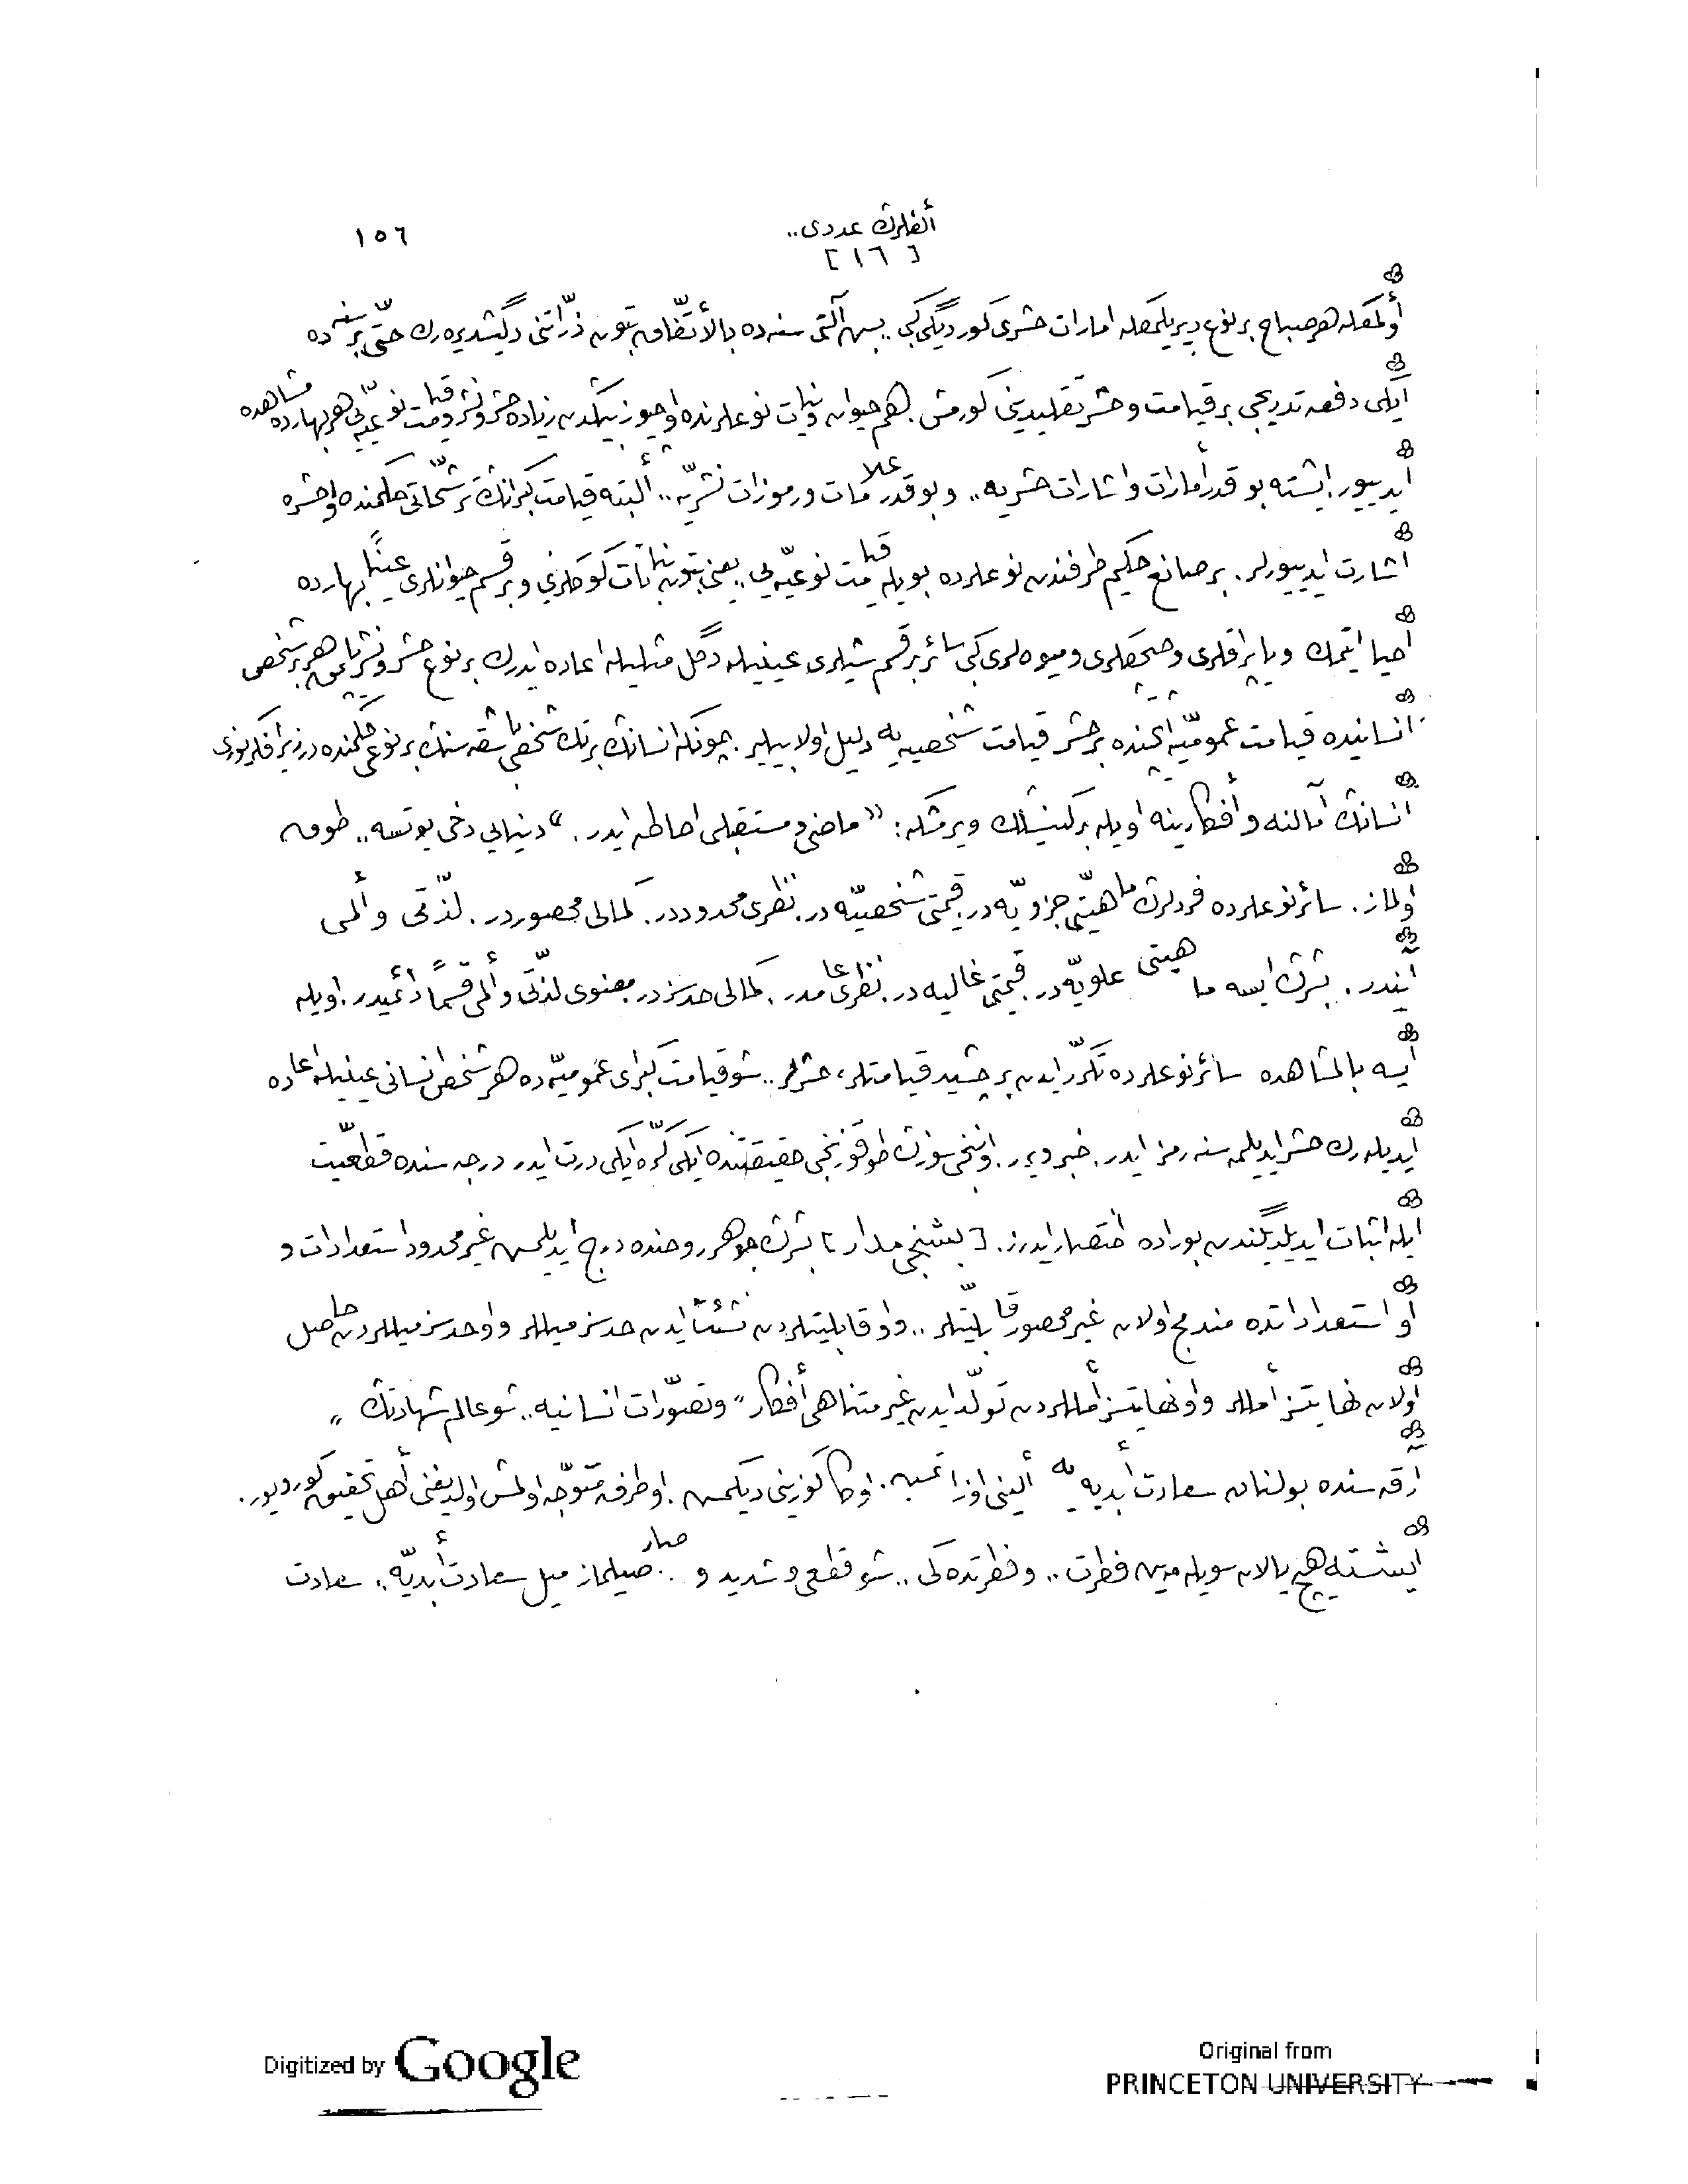 ١٥٦
ألفلرڭ عددى..
[ ١٦ ]
أولمقله هر صباح بر نوع ديريلمكله امارات حشرى كورديگى كبى.. بش آلتى سنه ده بالأتّفاق بتون ذرّاتنى دگيشديره رك حتّى بر سنه ده
ايكى دفعه تدريجى بر قيامت وحشر تقليدينى كورمش. هم حيوان ونبات نوعلرنده اوچيوز بيڭدن زياده حشر ونشر وقيامت نوعيّه يى هر بهارده مشاهده
ايدييور. ايشته بو قدر أمارات واشارات حشريه.. وبو قدر علامات ورموزات نشريّه.. ألبته قيامت كبرانڭ ترشّحاتى حكمنده او حشره
اشارت ايدييورلر. بر صانع حكيم طرفندن نوعلرده بويله قيامت نوعيّه يى.. يعنى بتون نباتات كوكلرينى وبر قسم حيوانلرى عينًا بهارده
احيا ايتمك ويا پراقلرى وچيچكلرى وميوه لرى كبى سائر بر قسم شيلرى عينيله دگل مثليله اعاده ايدرك بر نوع حشر ونشر ياپمق هر بر شخص
انسانيده قيامت عموميّه ايچنده بر حشر قيامت شخصيه يه دليل اولابيلير. چونكه انسانڭ بر تك شخصى باشقه سنڭ بر نوعى حكمنده در زيرا فكر نورى
انسانڭ آمالنه وأفكارينه اويله بر گنيشلك ويرمشكه: «ماضى ومستقبلى احاطه ايدر.» دنيايى دخى يوتسه.. طوق
اولماز. سائر نوعلرده فردلرڭ ماهيّتى جزويّه در. قيمتى شخصيّه در. نظرى محدوددر. كمالى محصوردر. لذّتى وألمى
آنيدر. بشرڭ ايسه ماهيتى علويّه در. قيمتى غاليه در. نظرى عامدر. كمالى حدسزدر. معنوى لذّتى وألمى قسمًا دائميدر. اويله
ايسه بالمشاهده سائر نوعلرده تكرّر ايدن بر چشيد قيامتلر، حشرلر.. شو قيامت كبراى عموميّه ده هر شخص انسانى عينيله اعاده
ايديله رك حشر ايديلمه سنه رمز ايدر. خبر ويرر. اوننجى سوزڭ طوقوزنجى حقيقتنده ايكى كرّه ايكى درت ايدر درجه سنده قطعيّت
ايله اثبات ايديلديگندن بوراده اختصار ايدرز. [ بشنجى مدار ] بشرڭ جوهر روحنده درج ايديلمش غير محدود استعدادات و
او استعداداتده مندمج اولان غير محصور قابليّتلر.. واو قابليتلردن نشئت ايدن حدسز ميللر واو حدسز ميللردن حاصل
اولان نهايتسز أمللر واو نهايتسز أمللردن تولّد ايدن غير متناهى أفكار" وتصوّرات انسانيه.. شو عالم شهادتڭ "
آرقه سنده بولنان سعادت أبديه يه ألينى اوزاتمش. اوڭا كوزينى ديكمش. او طرفه متوجّه اولمش اولديغنى أهل تحقيق كورويور.
ايشته هيچ يالان سويله مين فطرت.. وفطرتده كى.. شو قطعى وشديد و .. صارصيلماز ميل سعادت أبديّه.. سعادت
Digitized by Google
Original from
PRINCETON UNIVERSITY